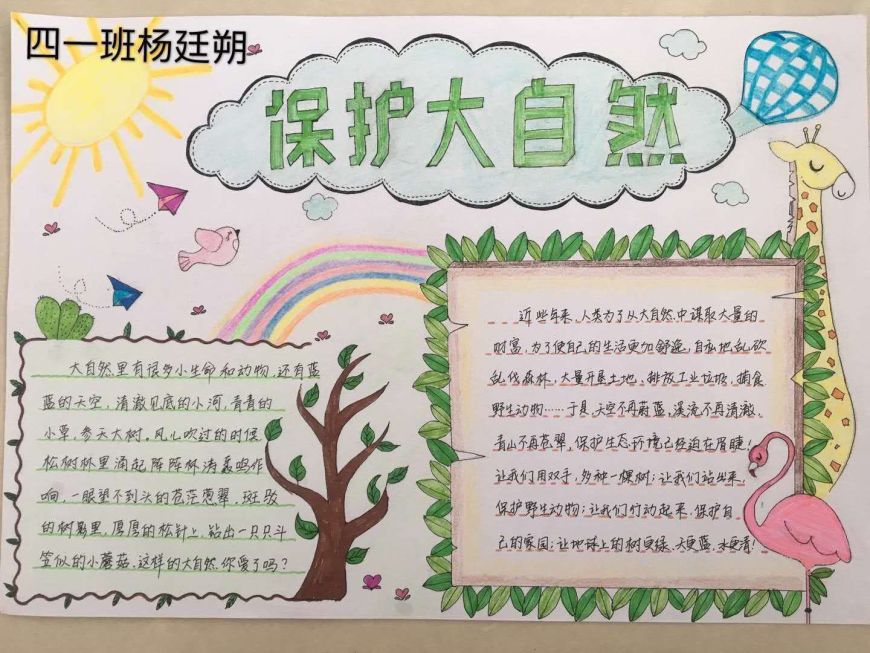 四一班杨廷朔
保护大自然
大自然里有很多小生命和动物,还有蓝
蓝的天空,清澈见底的小河,青青的
小草,参天大树。风儿吹过的时候
松树林里涌起阵阵林涛轰鸣作
响,一眼望不到头的苍茫葱翠,斑驳
的树影里,厚厚的松针上,钻出一只只斗
笠似的小蘑菇,这样的大自然,你爱了吗?
近些年来,人类为了从大自然中谋取大量的
财富,为了使自己的生活更加舒逸,自私地乱砍
乱伐森林,大量开垦土地、排放工业垃圾,捕食
野生动物……于是,天空不再蔚蓝,溪流不再清澈、
青山不再苍翠,保护生态环境已经迫在眉睫!
让我们用双手,多种一棵树;让我们站出来,
保护野生动物;让我们行动起来,保护自
己的家园;让地球上的树更绿、天更蓝、水更清!